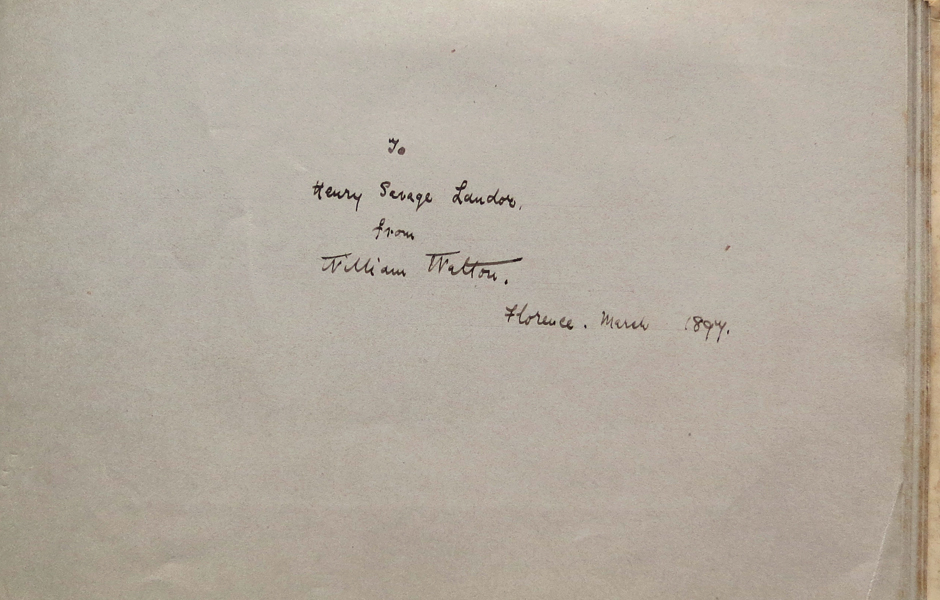 To
Henry Savage Landor,
from
William Walton.
Florence. March 1897.